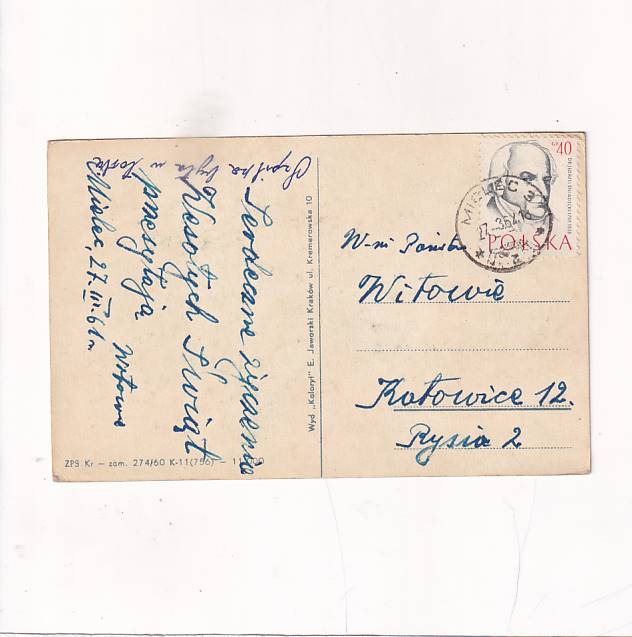 Serdeczne życzenia
Wesołych Świąt
przesyłają Witowe
Mielec, 27.III.61 r.
była w
Wyd „Koloryt” E. Jaworski Kraków ul. Kremerowska 10
ZPS Kr — zam. 274/60 K-11(756) —
40
POLSKA
MIELEC 3
W-ni Państwo
Witowie
Katowice 12.
Rysia 2